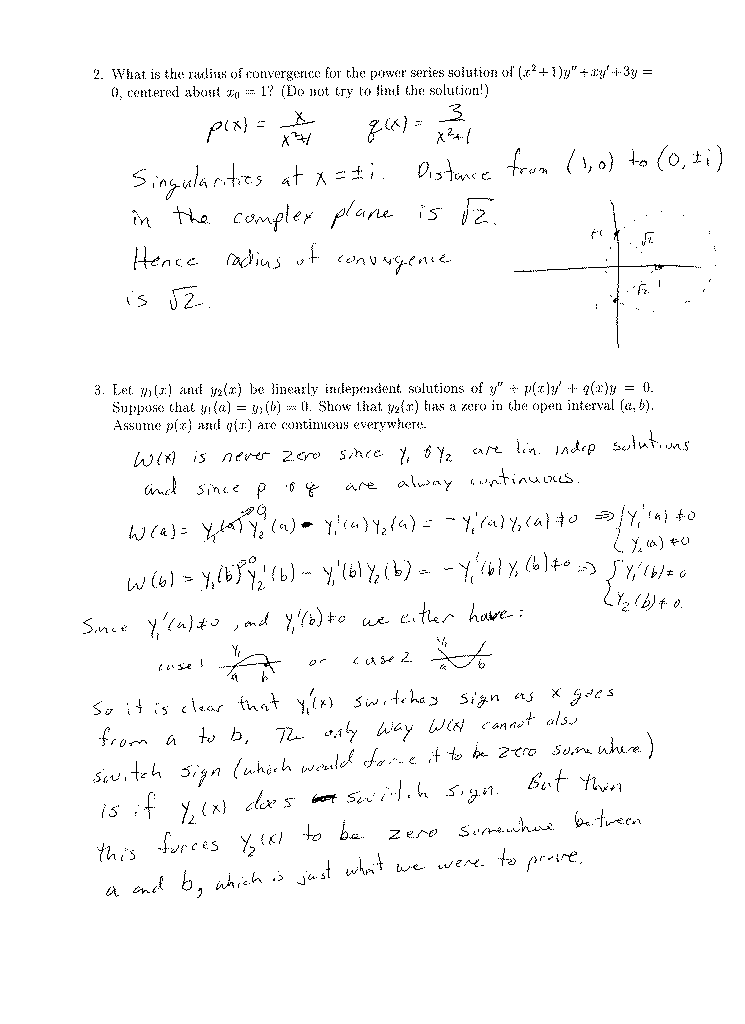 2. What is the radius of convergence for the power series solution of (x²+1)y″+xy′+3y =
0, centered about x₀ = 1? (Do not try to find the solution!)
p(x) = x/(x²+1)   q(x) = 3/(x²+1)
Singularities at x = ±i. Distance from (1,0) to (0,±i)
in the complex plane is √2.
Hence radius of convergence
is √2.
√2
√2 1
3. Let y₁(x) and y₂(x) be linearly independent solutions of y″ + p(x)y′ + q(x)y = 0.
Suppose that y₁(a) = y₁(b) = 0. Show that y₂(x) has a zero in the open interval (a, b).
Assume p(x) and q(x) are continuous everywhere.
W(x) is never zero since y₁ & y₂ are lin. indep solutions
and since p & q are alway continuous.
W(a) = y₁(a)y₂′(a) - y₁′(a)y₂(a) = -y₁′(a)y₂(a) ≠ 0 ⇒ { y₁′(a) ≠ 0
0
y₂(a) ≠ 0
W(b) = y₁(b)y₂′(b) - y₁′(b)y₂(b) = -y₁′(b)y₂(b) ≠ 0 ⇒ { y₁′(b) ≠ 0
0
y₂(b) ≠ 0.
Since y₁′(a) ≠ 0, and y₁′(b) ≠ 0 we either have:
case 1 y₁ a b or case 2 y₁ a b
So it is clear that y₁′(x) switches sign as x goes
from a to b. The only way W(x) cannot also
switch sign (which would force it to be zero somewhere)
is if y₂(x) does switch sign. But then
this forces y₂(x) to be zero somewhere between
a and b, which is just what we were to prove.